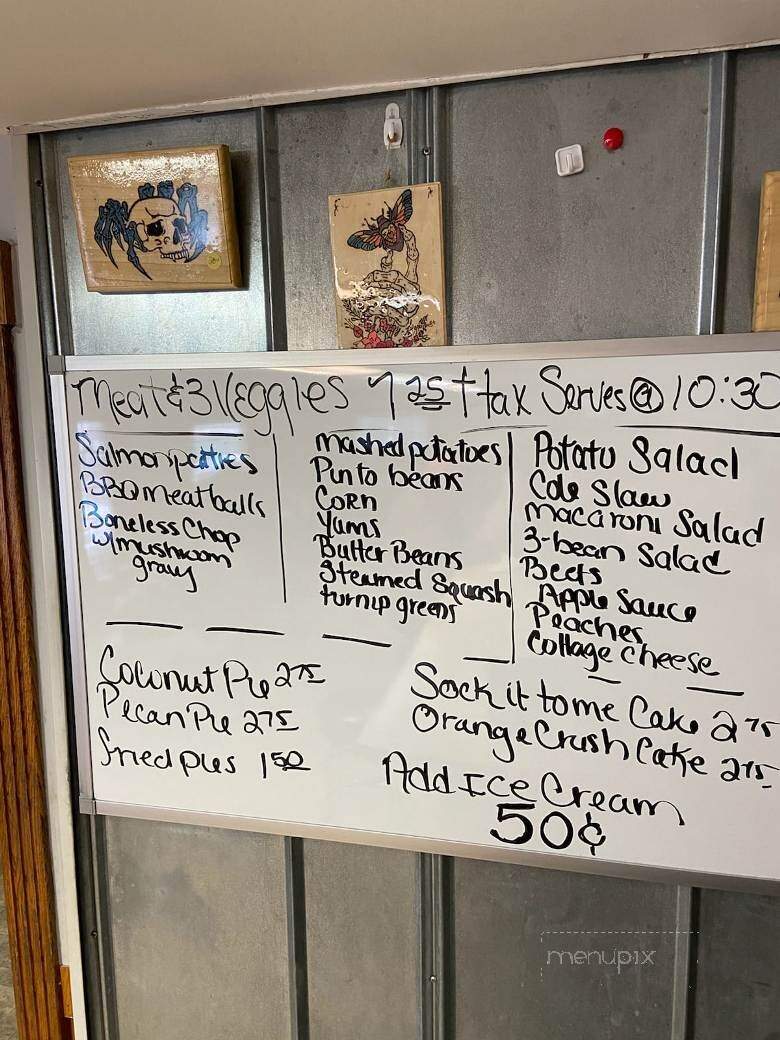 Meat & 3 Veggies 7 25 + tax Serves @ 10:30
Salmon patties
BBQ meatballs
Boneless Chop
w/mushroom
gravy
mashed potatoes
Pinto beans
CORN
Yams
Butter Beans
Steamed Squash
turnip greens
Potato Salad
Cole Slaw
macaroni Salad
3-bean Salad
Beets
Apple Sauce
Peaches
Cottage cheese
Coconut Pie 2 75
Pecan Pie 2 75
fried pies 1 50
Sock it to me Cake 2 75
Orange Crush Cake 2 75
Add Ice Cream
50¢
menupix